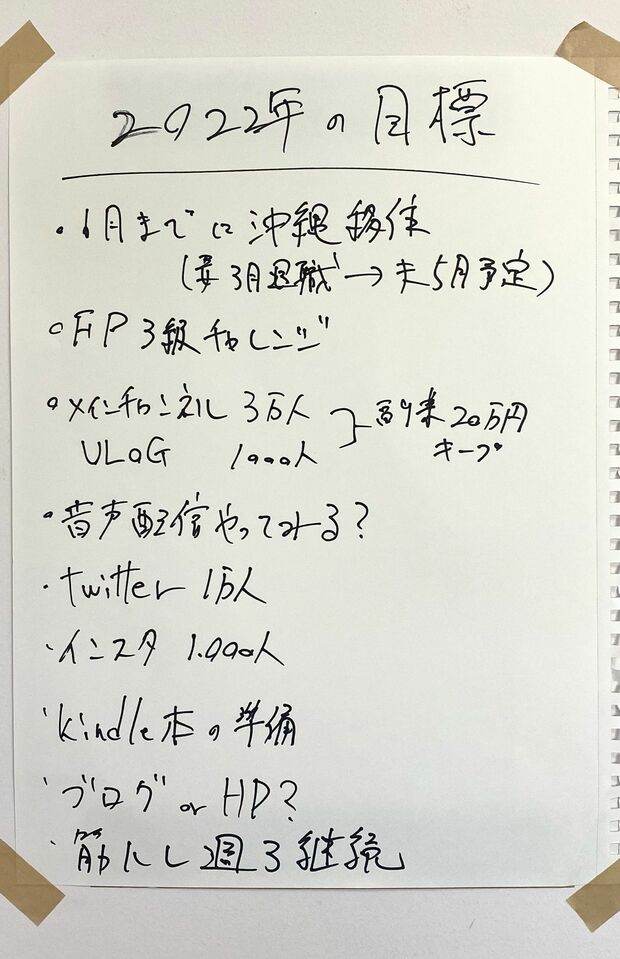 2022年の目標
・6月までに沖縄移住
(妻3月退職→夫5月予定)
・FP3級チャレンジ
・メインチャンネル 3万人
VLOG 1000人
副業20万円
キープ
・音声配信やってみる?
・twitter 1万人
・インスタ 1.000人
・kindle本の準備
・ブログ or HP?
・筋トレ週3継続